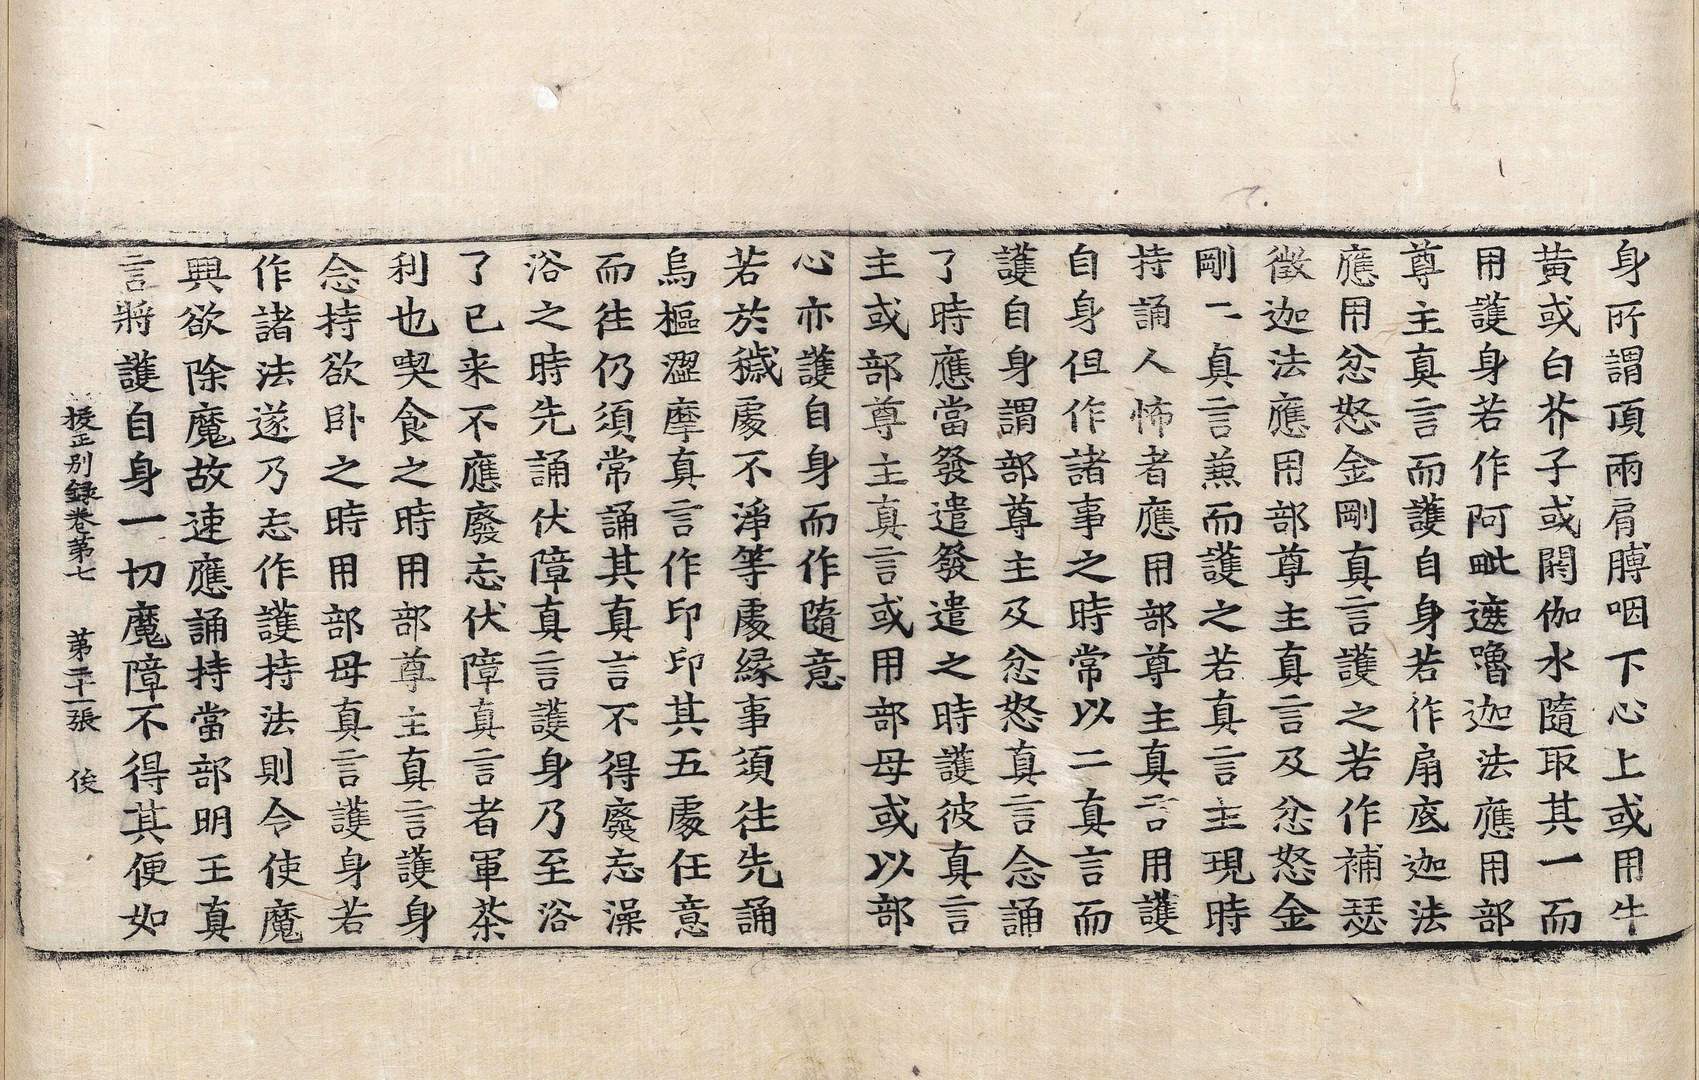 身所謂頂兩肩膊咽下心上或用牛
黃或白芥子或閼伽水隨取其一而
用護身若作阿毗遮嚕迦法應用部
尊主真言而護自身若作扇底迦法
應用忿怒金剛真言護之若作補瑟
徵迦法應用部尊主真言及忿怒金
剛二真言兼而護之若真言主現時
持誦人怖者應用部尊主真言用護
自身但作諸事之時常以二真言而
護自身謂部尊主及忿怒真言念誦
了時應當發遣發遣之時護彼真言
主或部尊主真言或用部母或以部
心亦護自身而作隨意
若於穢處不淨等處緣事須往先誦
烏樞澀摩真言作印印其五處任意
而往仍須常誦其真言不得廢忘澡
浴之時先誦伏障真言護身乃至浴
了已来不應廢忘伏障真言者軍荼
利也喫食之時用部尊主真言護身
念持欲臥之時用部母真言護身若
作諸法遂乃忘作護持法則令使魔
興欲除魔故速應誦持當部明王真
言將護自身一切魔障不得其便如
挍正別錄卷第七　第二十一張　俊